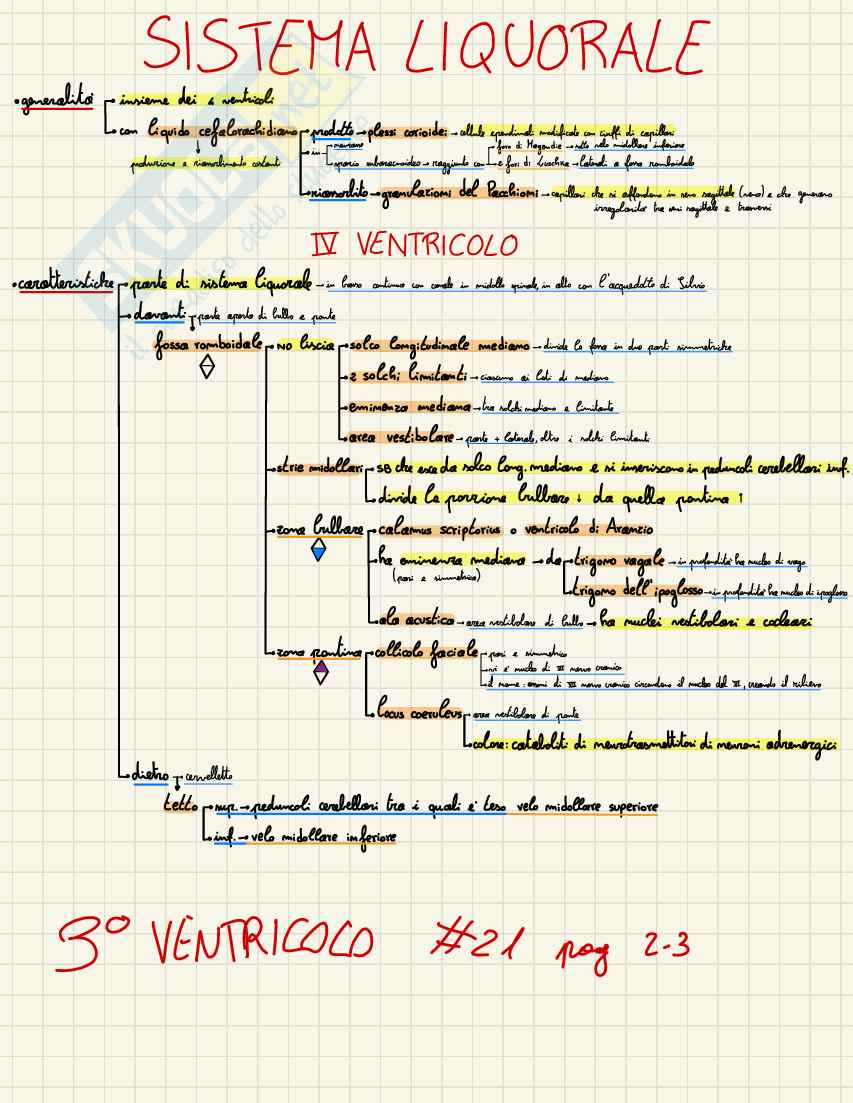 SISTEMA LIQUORALE
• generalità
insieme dei 4 ventricoli
con liquido cefalorachidiano
produzione e riassorbimento costanti
prodotto → plessi corioidei → cellule ependimali modificate con ciuffi di capillari
in nevrasse
spazio subaracnoideo → raggiunto con
foro di Magendie → sotto velo midollare inferiore
2 fori di Luschka → laterali a fossa romboidale
riassorbito → granulazioni del Pacchioni → capillari che si affondano in seno sagittale (seno) e che generano
irregolarità tra seni sagittale e trasversi
IV VENTRICOLO
• caratteristiche
parte di sistema liquorale → in basso continua con canale in midollo spinale, in alto con l'acquedotto di Silvio
davanti → parte aperta di bulbo e ponte
fossa romboidale
NO liscia
solco longitudinale mediano → divide la fossa in due parti simmetriche
2 solchi limitanti → ciascuno ai lati di mediano
eminenza mediana → tra solchi mediano e limitante
area vestibolare → parte + laterale, oltre i solchi limitanti
strie midollari
SB che esce da solco long. mediano e si inseriscono in peduncoli cerebellari inf.
divide la porzione bulbare ↓ da quella pontina ↑
zona bulbare
calamus scriptorius o ventricolo di Aranzio
ha eminenza mediana → da
(pari e simmetrica)
trigono vagale → in profondità ha nucleo di vago
trigono dell'ipoglosso → in profondità ha nucleo di ipoglosso
ala acustica → area vestibolare di bulbo → ha nuclei vestibolari e cocleari
zona pontina
collicolo faciale
pari e simmetrico
vi è nucleo di VI nervo cranico
il nome: assoni di VII nervo cranico circondano il nucleo del VI, creando il rilievo
locus coeruleus
area vestibolare di ponte
colore: cataboliti di neurotrasmettitori di neuroni adrenergici
dietro → cervelletto
tetto
sup. → peduncoli cerebellari tra i quali è teso velo midollare superiore
inf. → velo midollare inferiore
3° VENTRICOLO #21 pag 2-3
SKUOLA.net